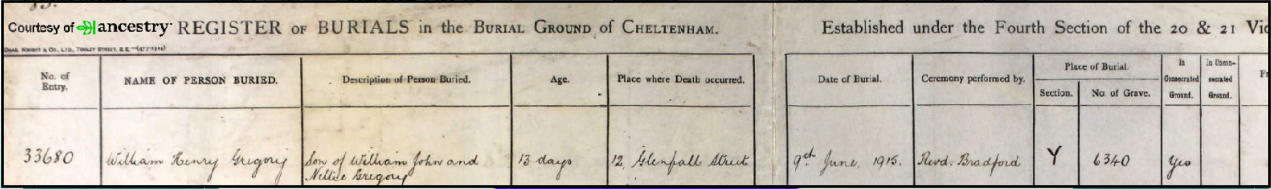 Courtesy of ancestry REGISTER OF BURIALS in the BURIAL GROUND OF CHELTENHAM. Established under the Fourth Section of the 20 & 21 Vic
No. of Entry. NAME OF PERSON BURIED. Description of Person Buried. Age. Place where Death occurred. Date of Burial. Ceremony performed by. Place of Burial. Section. No. of Grave. In Consecrated Ground. In Uncon-secrated Ground.
33680 William Henry Gregory Son of William John and 13 days 12, Glenfall Street 9th June, 1915. Revd. Bradford Y 6340 Yes
Nellie Gregory